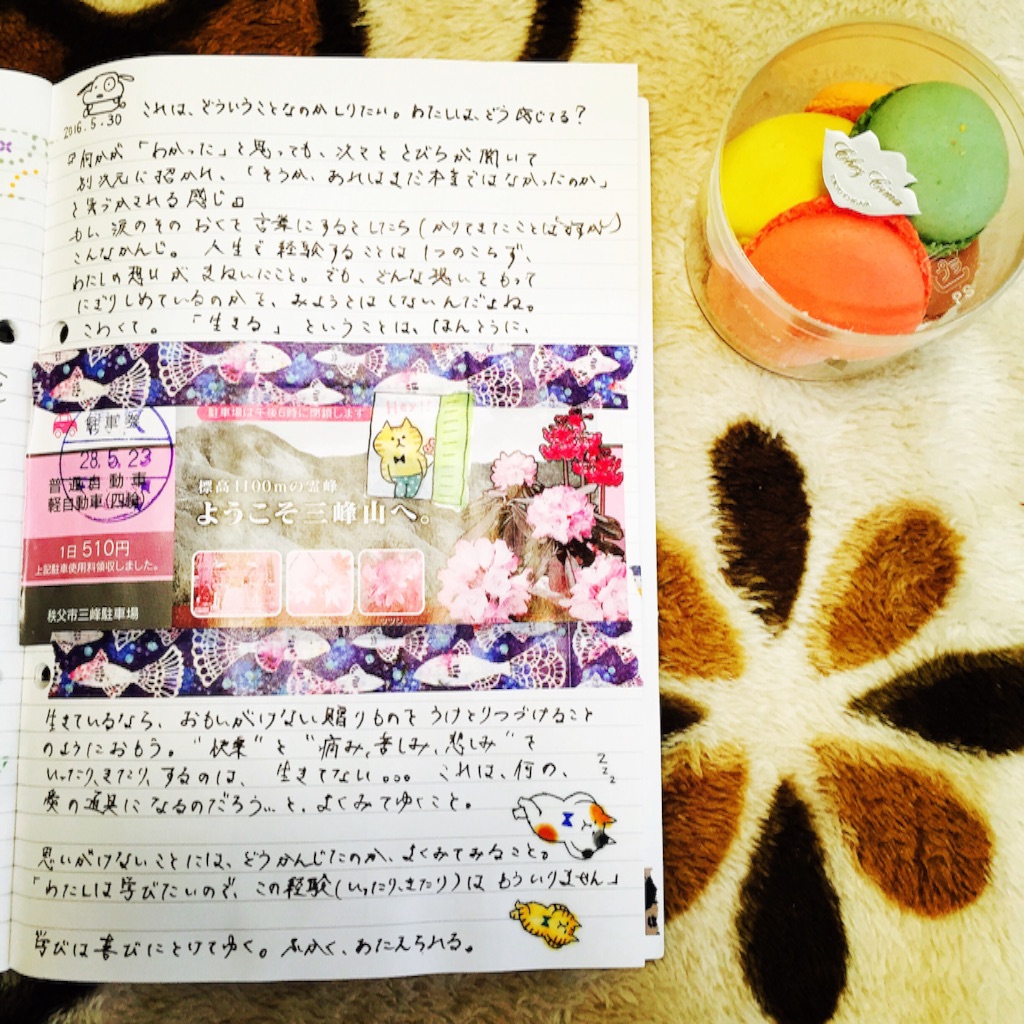 2016.5.30
これは、どういうことなのかしりたい。わたしは、どう感じてる?
『何かが「わかった」と思っても、次々ととびらが開いて
別次元に招かれ、「そうか、あれはまだ本当ではなかったのか」
と気づかされる感じ』
もし、涙のそのおくを言葉にするとしたら(かりてきたことばですが)
こんなかんじ。人生で経験することは1つのこらず、
わたしの想いがまねいたこと。でも、どんな想いをもって
にぎりしめているのかを、みようとはしないんだよね。
こわくて。「生きる」ということは、ほんとうに、
駐車場は午後6時に閉鎖します
駐車券
28.5.23
普通自動車
軽自動車(四輪)
1日510円
上記駐車使用料領収しました。
秩父市三峰駐車場
標高1100mの霊峰
ようこそ三峰山へ。
ツツジ
生きているなら、おもいがけない贈りものをうけとりつづけること
のようにおもう。"快楽"と"痛み、苦しみ、悲しみ"を
いったり、きたり、するのは、生きてない。。。これは、何の、
愛の道具になるのだろう…と、よくみてゆくこと。
z z z
思いがけないことには、どうかんじたのか、よくみてみること。
「わたしは学びたいので、この経験(いったり、きたり)はもういりません」
学びは喜びにとけてゆく。ふかく、あたえられる。
Chez Cima